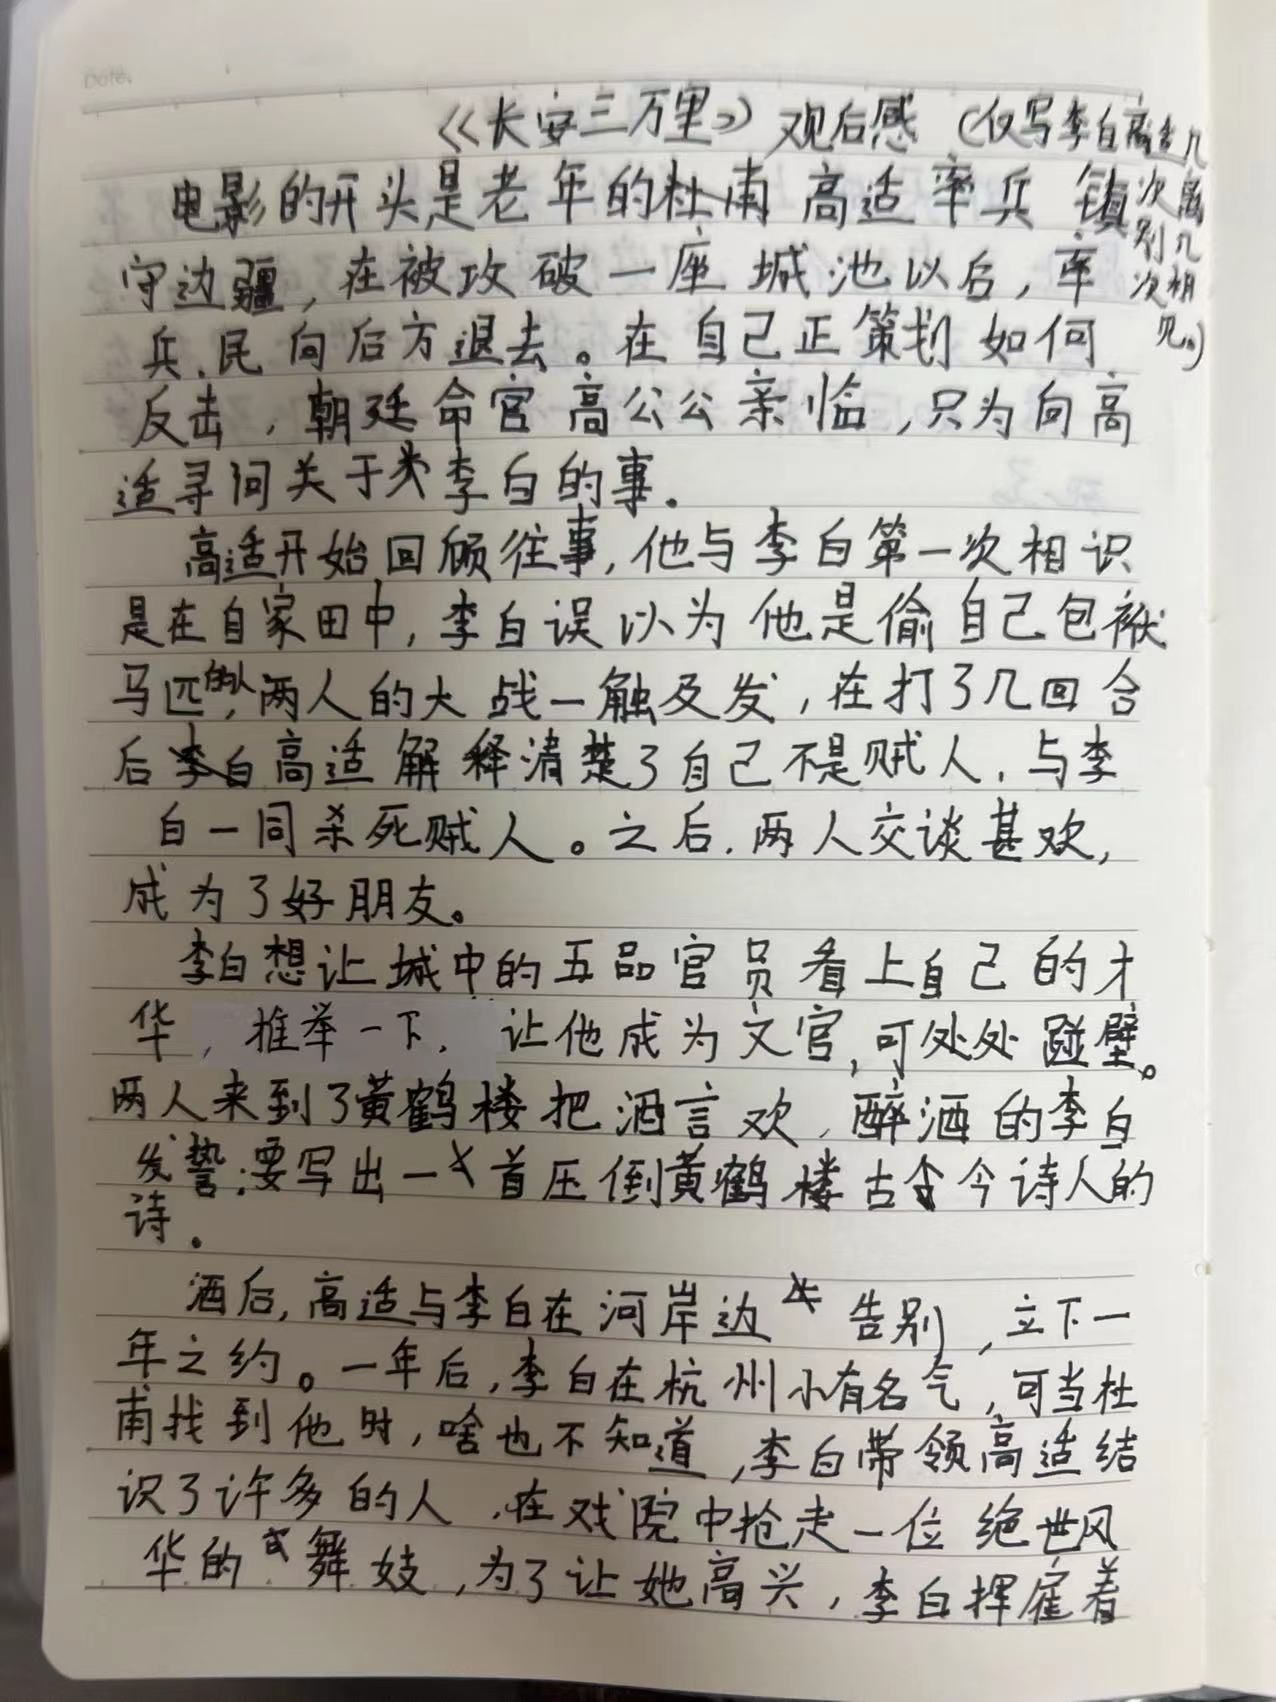 Date.
《长安三万里》观后感 (仅写李白高适几次离别几次相见。)
电影的开头是老年的杜甫 高适率兵 镇
守边疆，在被攻破一座城池以后，率
兵、民向后方退去。在自己正策划如何
反击，朝廷命官高公公亲临，只为向高
适寻问关于李白的事。
高适开始回顾往事，他与李白第一次相识
是在自家田中，李白误以为他是偷自己包袱
马匹的人，两人的大战一触及发，在打了几回合
后李白高适解释清楚了自己不是贼人，与李
白一同杀死贼人。之后，两人交谈甚欢，
成为了好朋友。
李白想让城中的五品官员看上自己的才
华，推举一下，让他成为文官，可处处碰壁。
两人来到了黄鹤楼把酒言欢，醉酒的李白
发誓：要写出一首压倒黄鹤楼古今诗人的
诗。
酒后，高适与李白在河岸边告别，立下一
年之约。一年后，李白在杭州小有名气，可当杜
甫找到他时，啥也不知道，李白带领高适结
识了许多的人，在戏院中抢走一位绝世风
华的舞妓，为了让她高兴，李白挥雇着